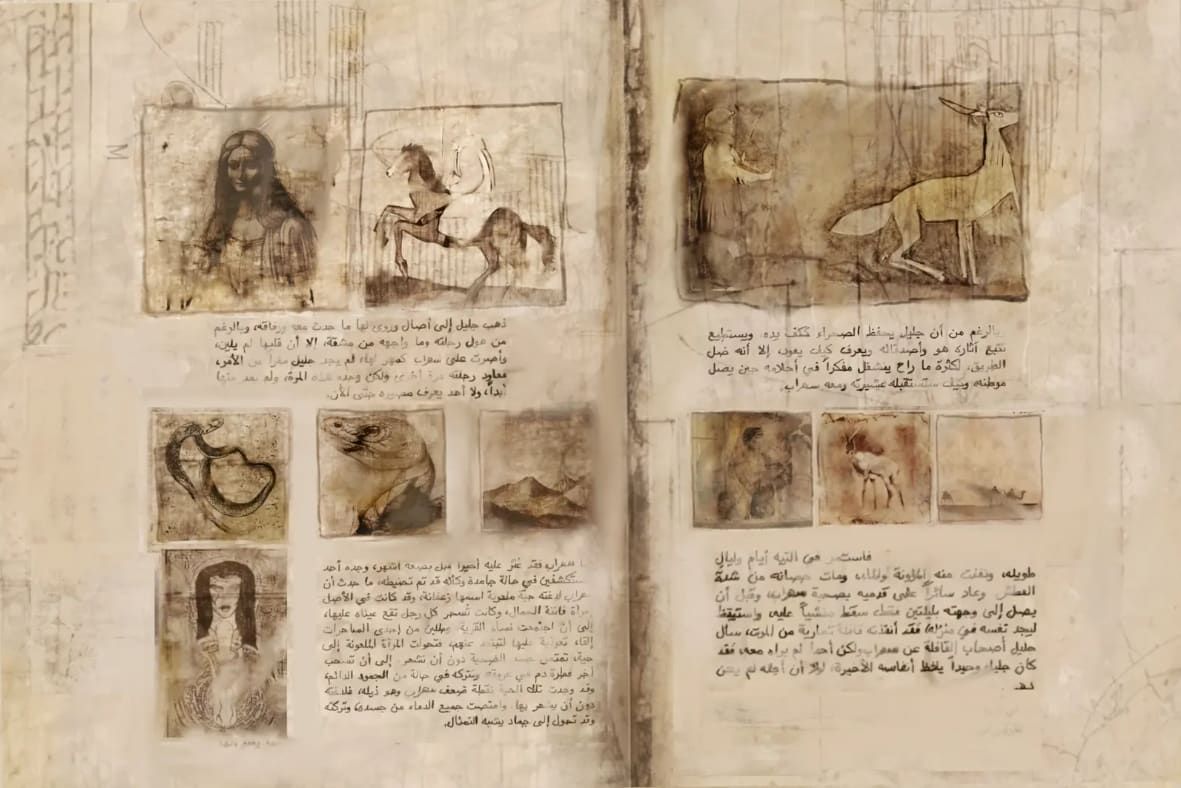 بالرغم من أن جليل يحفظ الصحراء ككف يده، ويستطيع
تتبع آثاره هو وأصدقائه ويعرف كيف يعود، إلا أنه ضل
الطريق، لكثرة ما راح ينشغل مفكراً في أحلامه حين يصل
موطنه، وكيف ستستقبله عشيرته ومعه سهراب.
فاستمر في التيه أيام وليالٍ
طويلة، ونفذت منه المؤونة والماء، ومات حصانه من شدة
العطش، وعاد سائراً على قدميه بصحبة سهراب، وقبل أن
يصل إلى وجهته بليلتين فقط سقط مغشياً عليه، واستيقظ
ليجد نفسه في منزله، فقد أنقذته قافلة تجارية من الموت، سأل
جليل أصحاب القافلة عن سهراب ولكن أحداً لم يراه معه، فقد
كان جليل وحيداً يلفظ أنفاسه الأخيرة، لولا أن أجله لم يحن
بعد.
ذهب جليل إلى آصال وروى لها ما حدث معه ورفاقه، وبالرغم
من هول رحلته وما واجهه من مشقة، إلا أن قلبها لم يلين،
وأصرت على سهراب كمهر لها، لم يجد جليل مفرا من الأمر،
فعاود رحلته مرة أخرى ولكن وحده هذه المرة، ولم يعد منها
أبداً، ولا أحد يعرف مصيره حتى الآن.
سهراب فقد عُثر عليه أخيراً قبل بضعة أشهر، وجده أحد
المستكشفين في حالة جامدة وكأنه قد تم تحنيطه، ما حدث أن
سهراب لدغته حية ملعونة اسمها وقد كانت في الأصل
امرأة فاتنة الجمال، وكانت تُسحر كل رجل تقع عيناه عليها،
إلى أن اجتمعت نساء القرية، وطلبن من إحدى الساحرات
إلقاء تعويذة عليها لتبتعد عنهم، فتحولت المرأة الملعونة إلى
حية، تمتص جسد الضحية دون أن تشعر، إلى أن تسحب
آخر قطرة دم في عروقه وتتركه في حالة من الجمود الدائم،
وقد وجدت تلك الحية نقطة ضعف سهراب وهو ذيله، فلدغته
دون أن يشعر بها، وامتصت جميع الدماء من جسده، وتركته
وقد تحول إلى جماد يشبه التمثال.